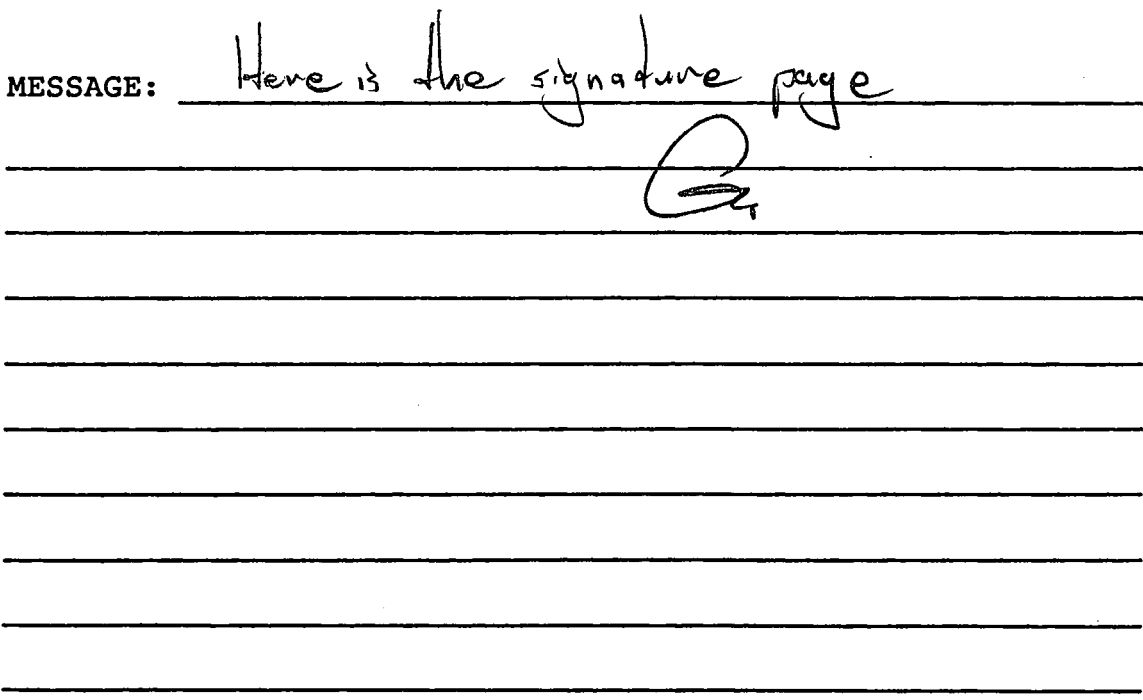 MESSAGE: Here is the signature page